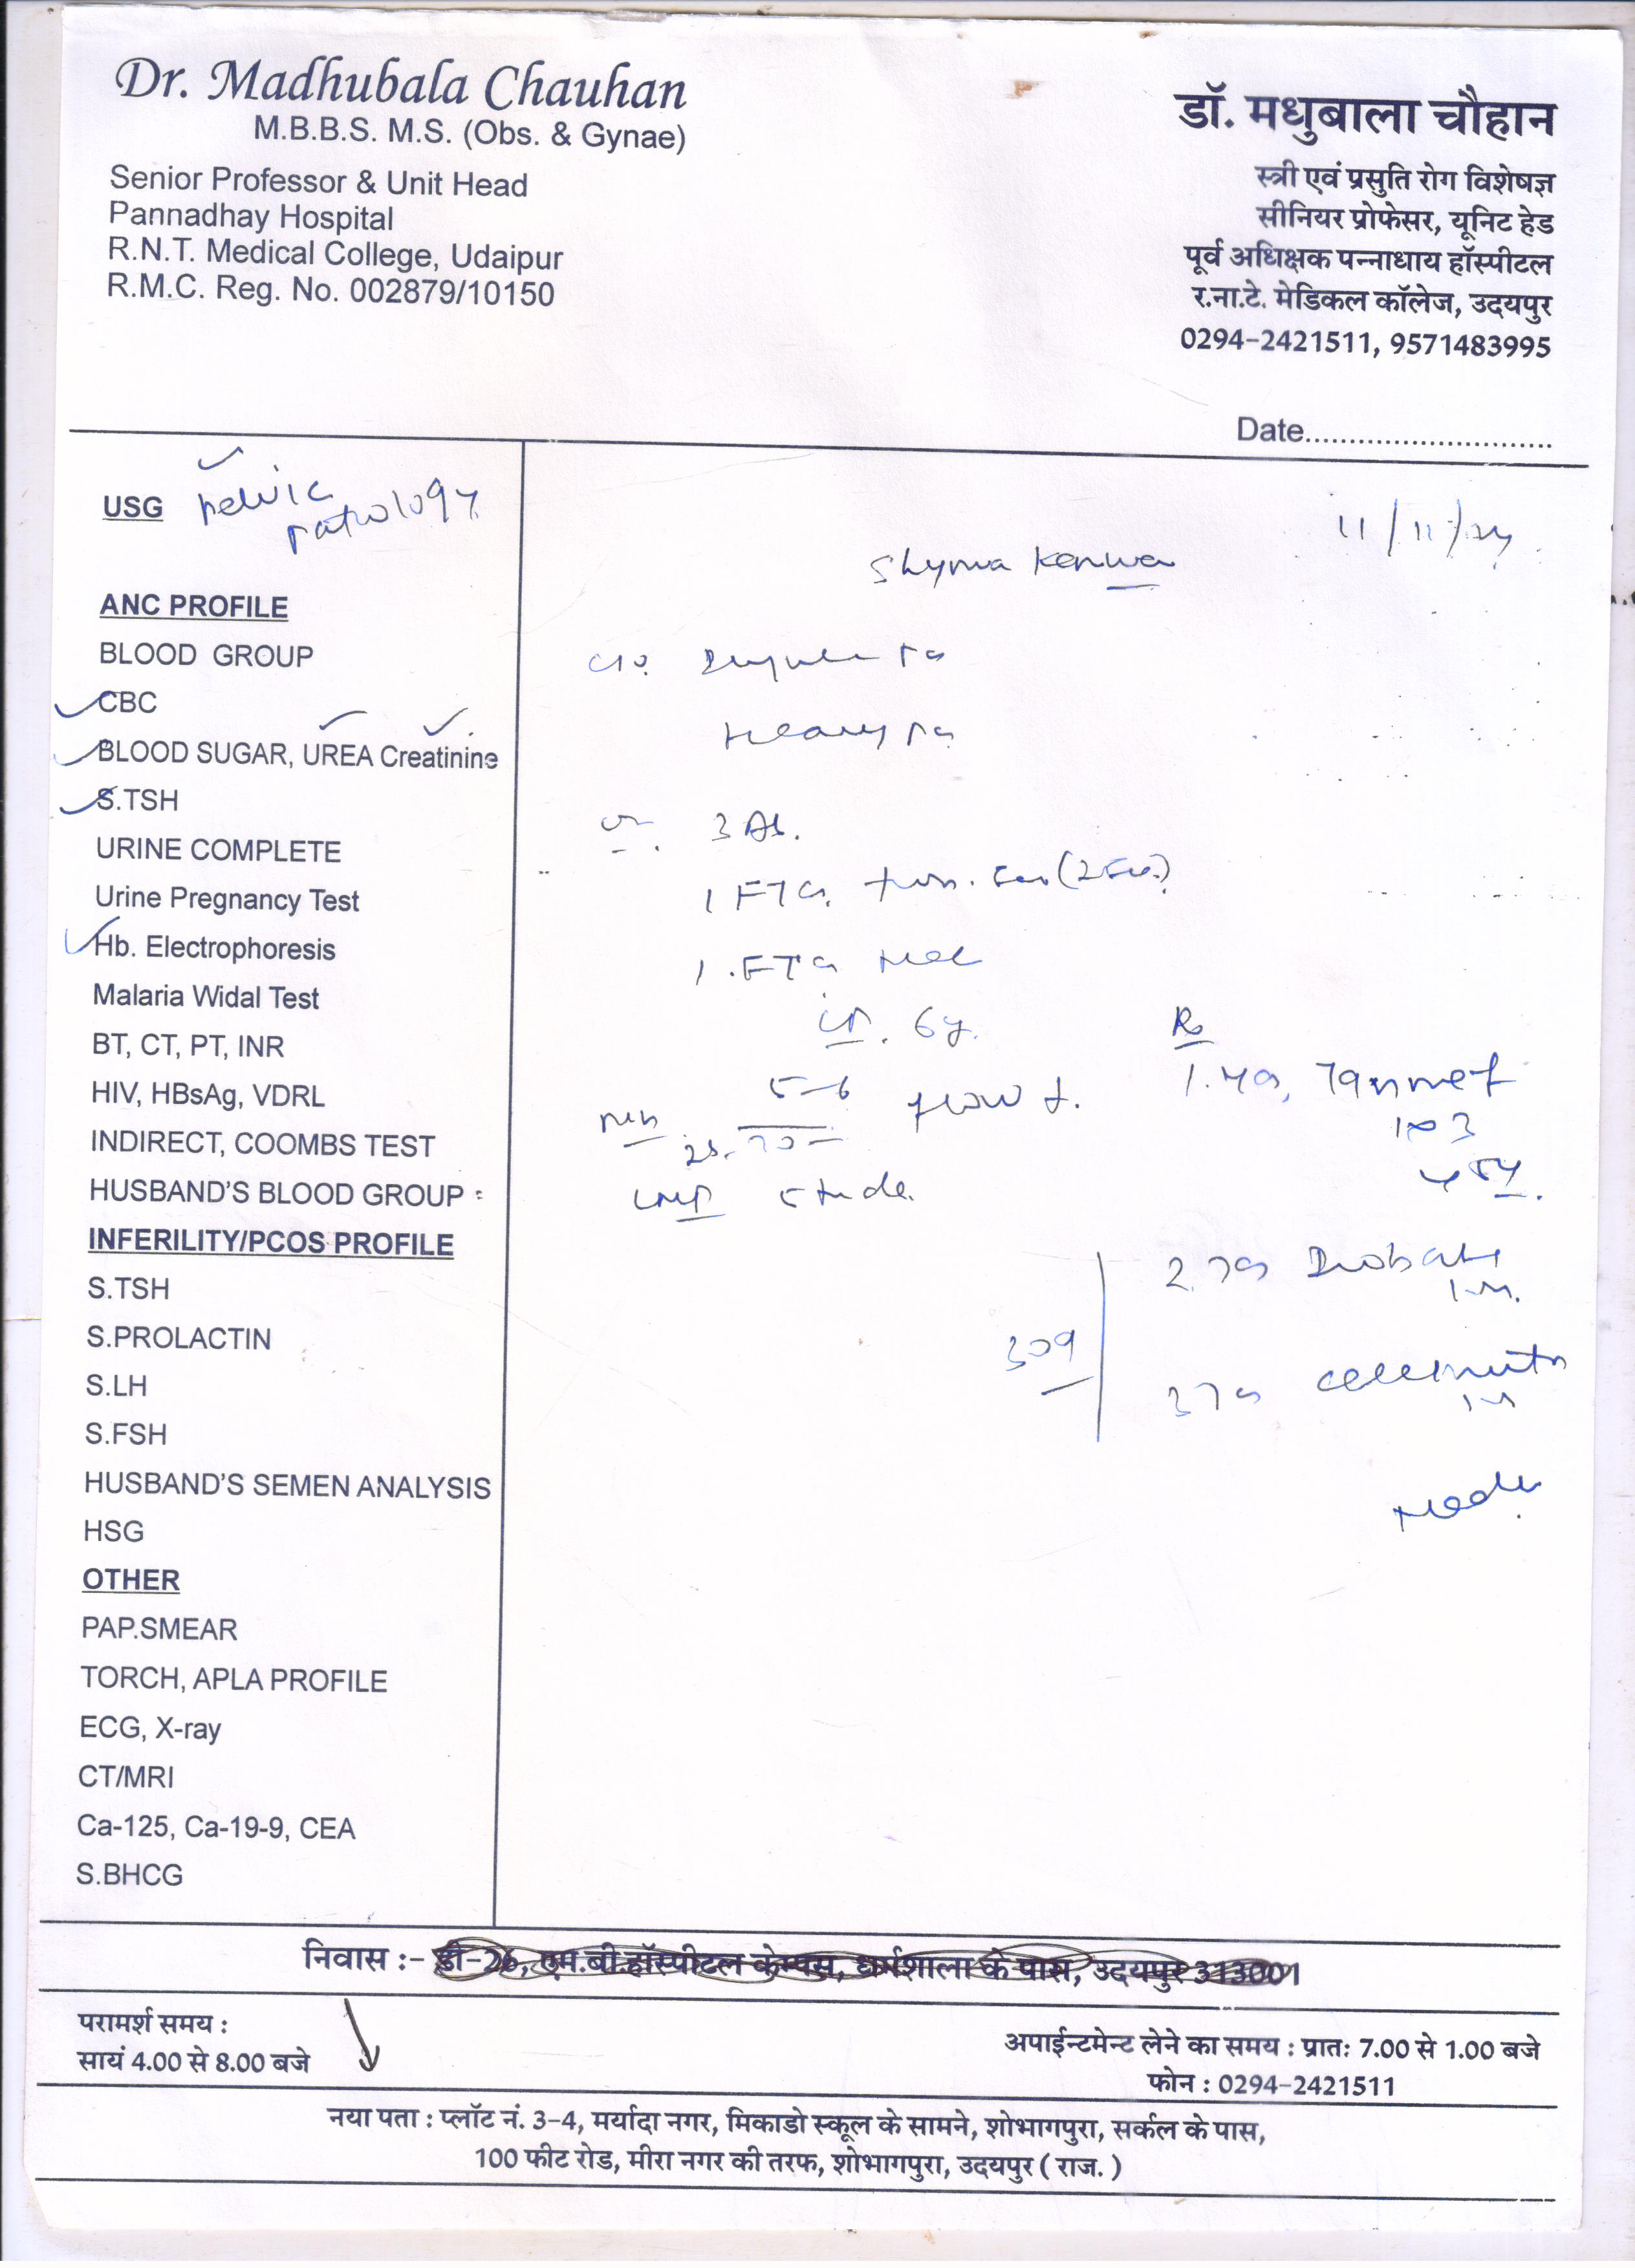 Dr. Madhubala Chauhan
M.B.B.S. M.S. (Obs. & Gynae)
Senior Professor & Unit Head
Pannadhay Hospital
R.N.T. Medical College, Udaipur
R.M.C. Reg. No. 002879/10150
डॉ. मधुबाला चौहान
स्त्री एवं प्रसुति रोग विशेषज्ञ
सीनियर प्रोफेसर, यूनिट हेड
पूर्व अधिक्षक पन्नाधाय हॉस्पीटल
र.ना.टे. मेडिकल कॉलेज, उदयपुर
0294-2421511, 9571483995
Date............................
11/11/24
USG pelvic
pathology
ANC PROFILE
BLOOD GROUP
CBC
BLOOD SUGAR, UREA Creatinine
S.TSH
URINE COMPLETE
Urine Pregnancy Test
Hb. Electrophoresis
Malaria Widal Test
BT, CT, PT, INR
HIV, HBsAg, VDRL
INDIRECT, COOMBS TEST
HUSBAND'S BLOOD GROUP :
INFERILITY/PCOS PROFILE
S.TSH
S.PROLACTIN
S.LH
S.FSH
HUSBAND'S SEMEN ANALYSIS
HSG
OTHER
PAP.SMEAR
TORCH, APLA PROFILE
ECG, X-ray
CT/MRI
Ca-125, Ca-19-9, CEA
S.BHCG
c/o.
Heavy
3 Ab.
6y.
5-6
flow
LMP
Rx
1.
2.
3
निवास :- डी-26, एम.बी.हॉस्पीटल केम्पस, धर्मशाला के पास, उदयपुर 313001
परामर्श समय :
सायं 4.00 से 8.00 बजे
अपाईन्टमेन्ट लेने का समय : प्रातः 7.00 से 1.00 बजे
फोन : 0294-2421511
नया पता : प्लॉट नं. 3-4, मर्यादा नगर, मिकाडो स्कूल के सामने, शोभागपुरा, सर्कल के पास,
100 फीट रोड, मीरा नगर की तरफ, शोभागपुरा, उदयपुर ( राज. )